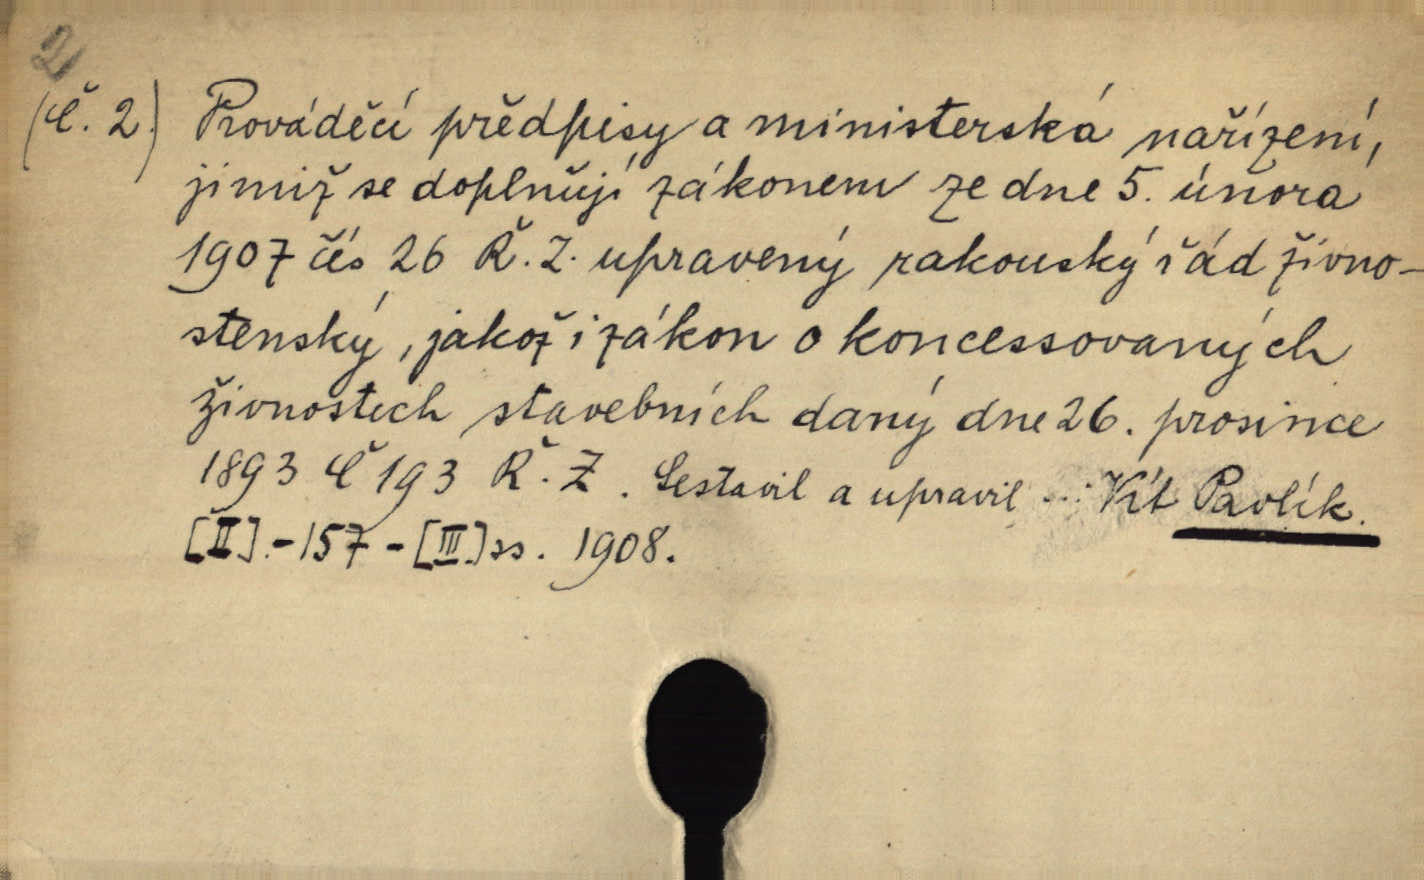 2
(Č. 2.) Prováděcí předpisy a ministerská nařízení,
jimiž se doplňují zákonem ze dne 5. února
1907 čís 26 Ř. Z. upravený rakouský řád živno-
stenský, jakož i zákon o koncessovaných
živnostech stavebních daný dne 26. prosince
1893 Č 193 Ř. Z. Sestavil a upravil ... Vít Pavlík.
[II].-157-[III.]ss. 1908.